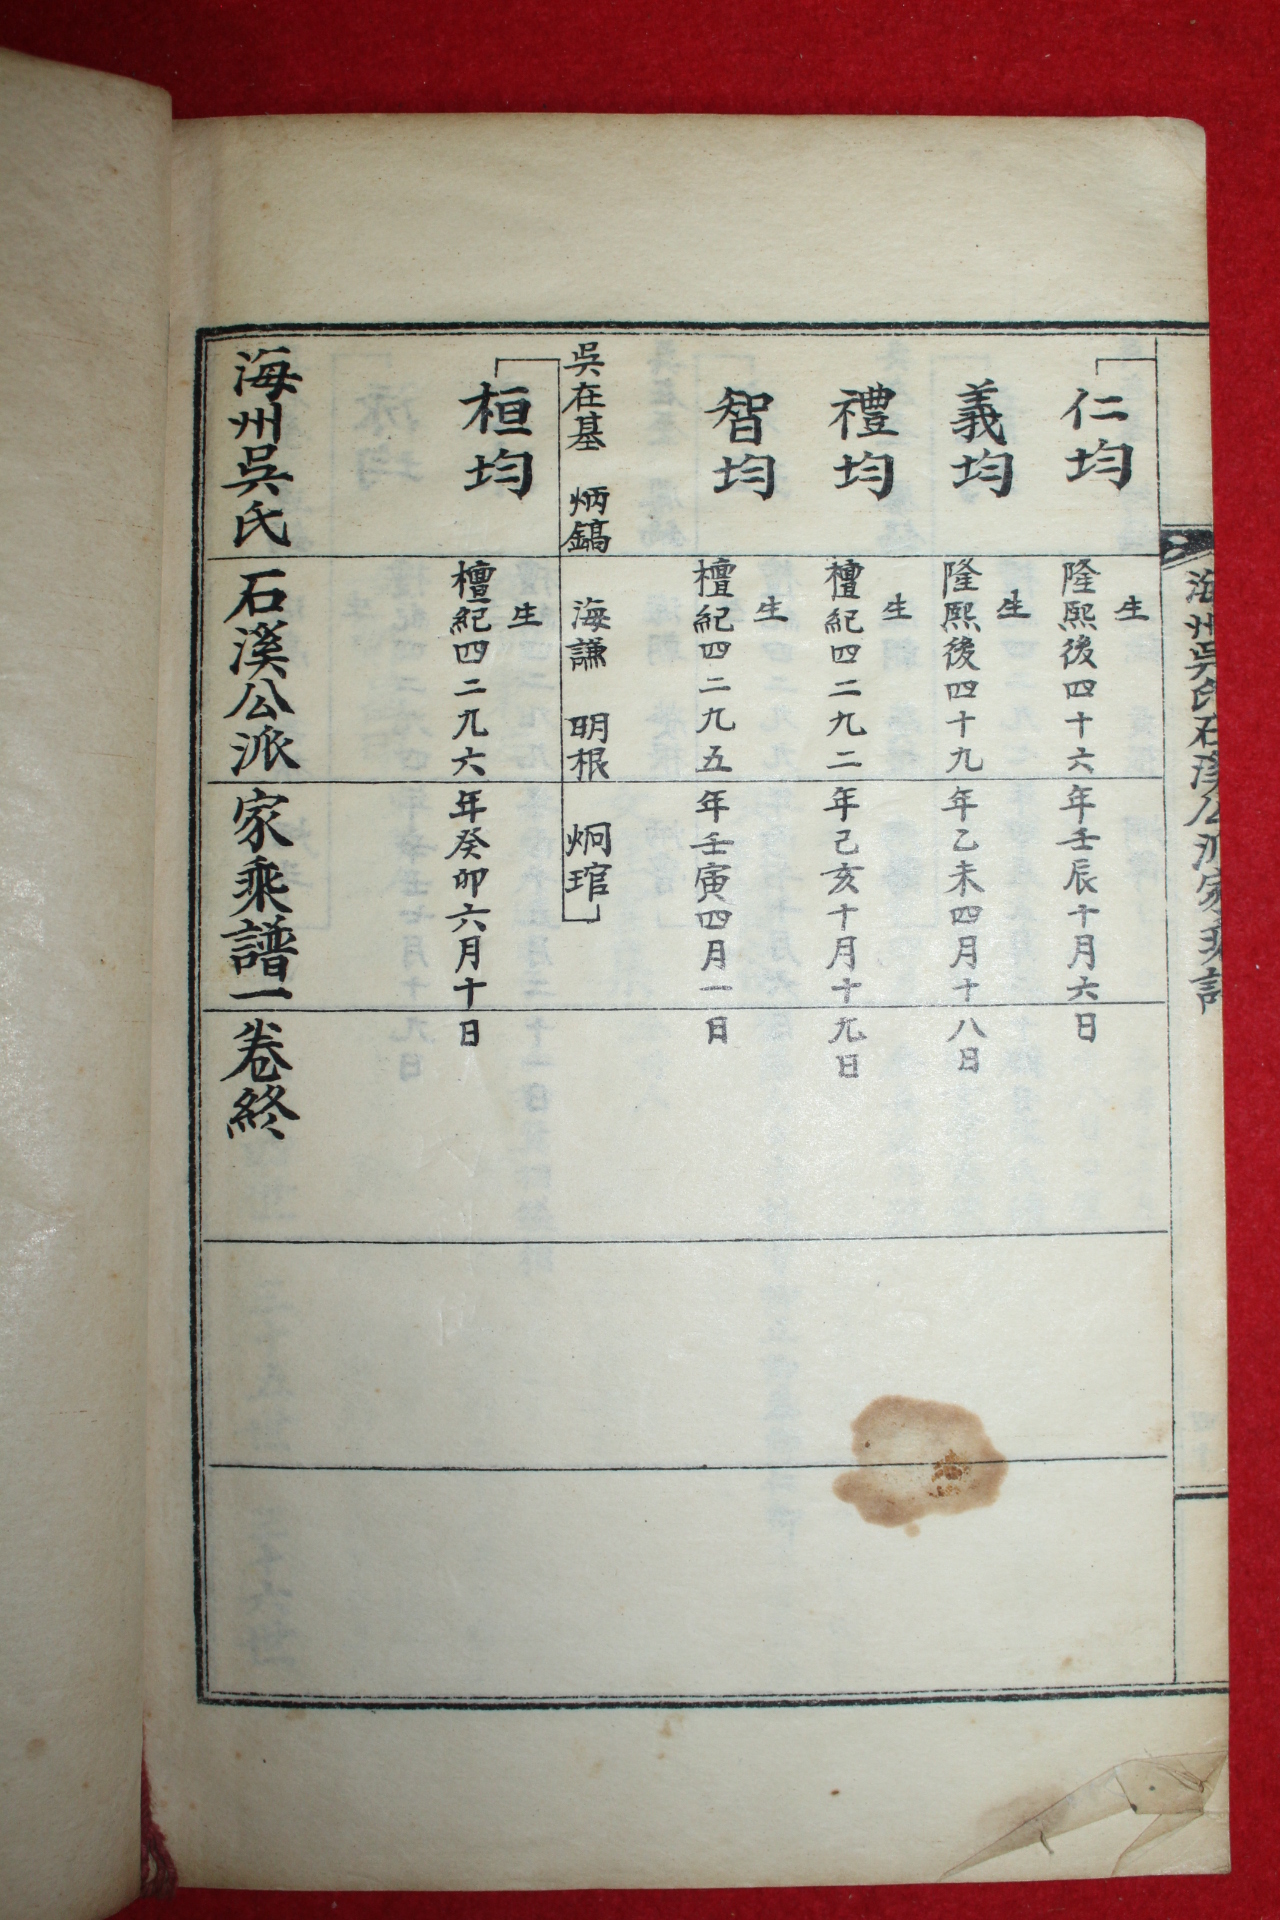 海州吳氏石溪公派家乘譜
仁均
生
隆熙後四十六年壬辰十月六日
義均
生
隆熙後四十九年乙未四月十八日
禮均
生
檀紀四二九二年己亥十月十九日
智均
生
檀紀四二九五年壬寅四月一日
吳在基 炳鎬 海謙 明根 炯琯
桓均
生
檀紀四二九六年癸卯六月十日
海州吳氏石溪公派家乘譜一卷終